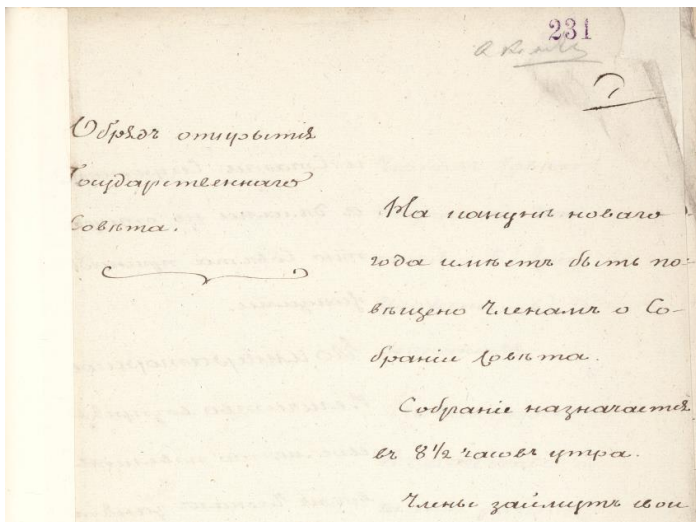 231
Обрядъ открытія
Государственнаго
Совѣта.
На канунѣ новаго
года имѣетъ быть по-
вѣщено Членамъ о Со-
браніи Совѣта.
Собраніе назначается
въ 8½ часовъ утра.
Члены займутъ свои